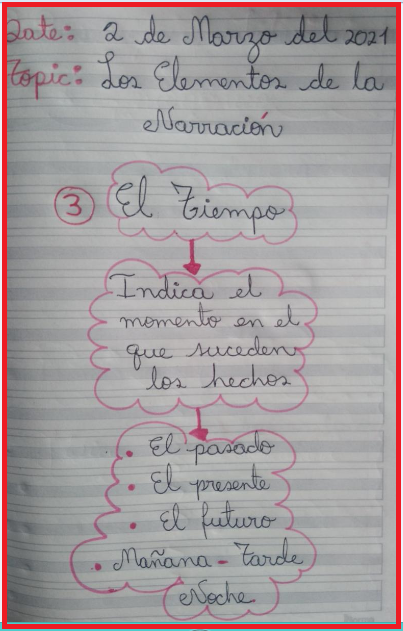 Date: 2 de Marzo del 2021
Topic: Los Elementos de la
Narración
3 El Tiempo
Indica el
momento en el
que suceden
los hechos
• El pasado
• El presente
• El futuro
• Mañana - Tarde
Noche